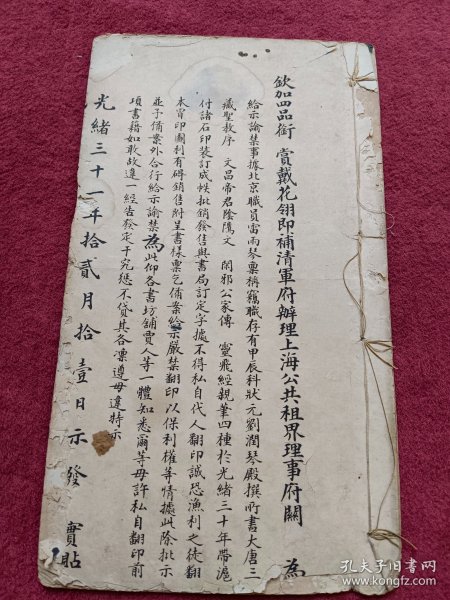 欽加四品銜 賞戴花翎即補清軍府辦理上海公共租界理事府關 為
給示諭禁事據北京職員雷雨琴稟稱竊職存有甲辰科狀元劉潤琴殿撰所書大唐三
藏聖教序 文昌帝君陰隲文 閑邪公家傳 靈飛經親筆四種於光緒三十年帶滬
付諸石印裝訂成帙批銷發售與書局訂定字據不得私自代人翻印誠恐漁利之徒翻
未曾印圖利有碍銷售附呈書樣稟乞備案給示嚴禁翻印以保利權等情據此除批示
並予備案外合行給示諭禁為此仰各書坊鋪賈人等一體知悉爾等毋許私自翻印前
項書籍如敢故違一經告發定干究懲不貸其各凜遵毋違特示
光緒三十一年拾貳月拾壹日示 發 實貼
孔夫子旧书网
book.kongfz.com